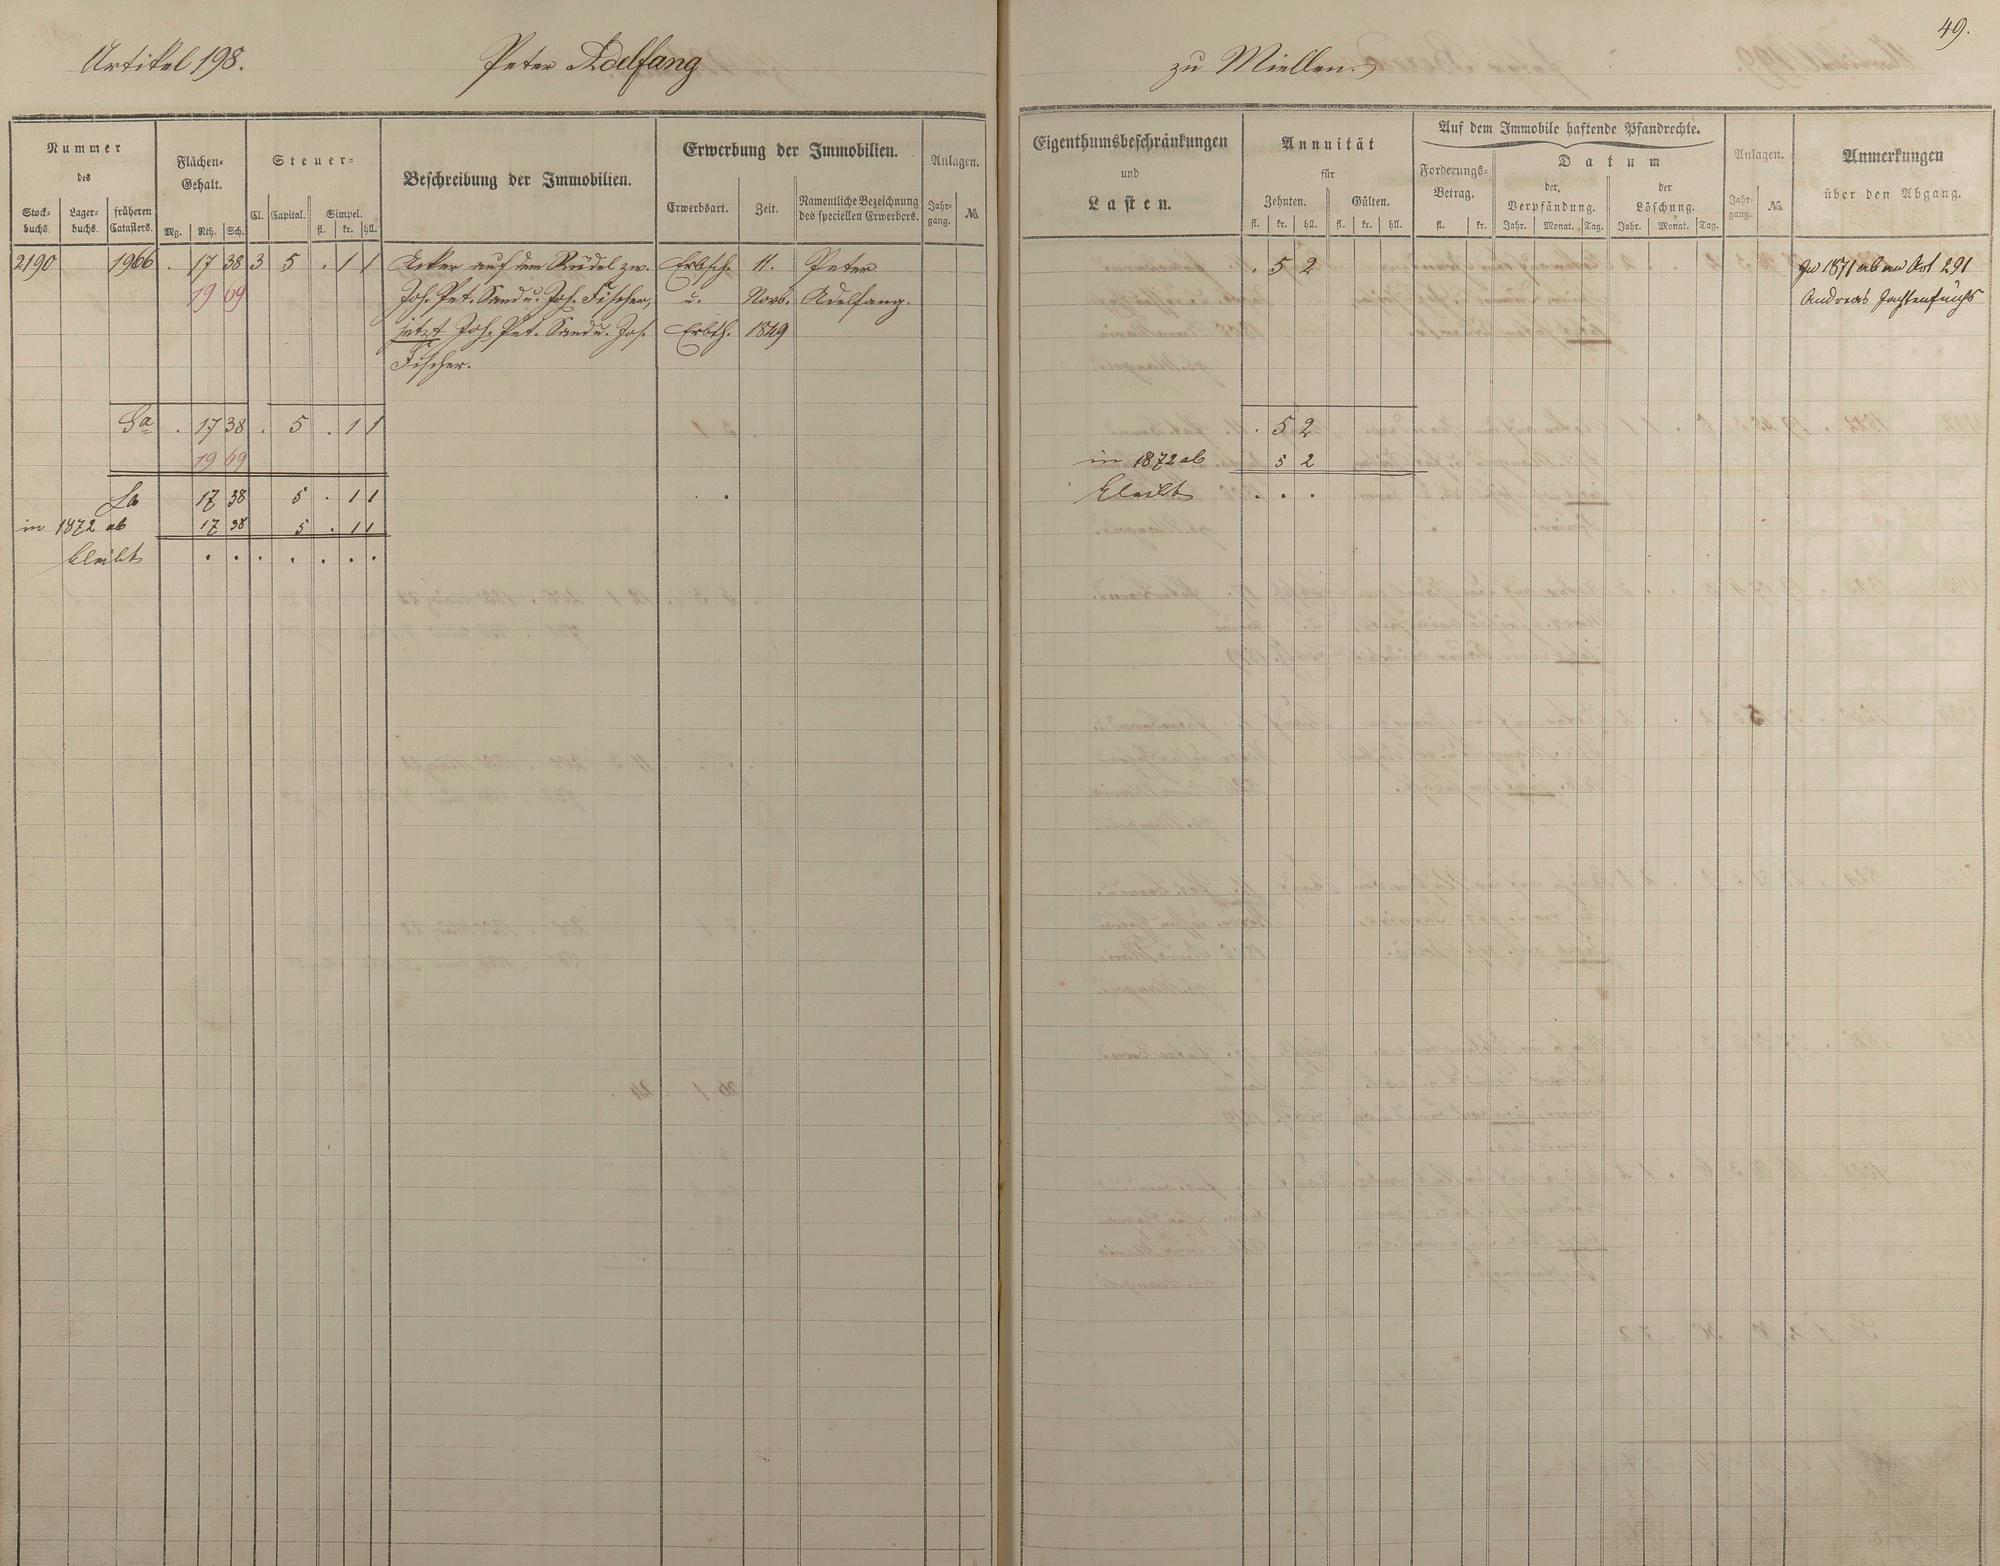 49.
Artikel 198. Peter Adelfang zu Miellen.
Nummer des
Stock-buchs. Lager-buchs. früheren Catasters.
Flächen-Gehalt.
Mg. Rth. Sch.
Steuer-
Cl. Capital. Simpel.
fl. kr. hll.
Beschreibung der Immobilien.
Erwerbung der Immobilien.
Erwerbsart. Zeit. Namentliche Bezeichnung des speciellen Erwerbers.
Anlagen.
Jahr-gang. No.
Eigenthumsbeschränkungen
und
Lasten.
Annuität
für
Zehnten. Gülten.
fl. kr. hll. fl. kr. hll.
Auf dem Immobile haftende Pfandrechte.
Forderungs-Betrag.
fl. kr.
Datum
der Verpfändung. der Löschung.
Jahr. Monat. Tag. Jahr. Monat. Tag.
Anlagen.
Jahr-gang. No.
Anmerkungen
über den Abgang.
2190 1906 . 17 38 3 5 . 1 1 Acker auf dem Rüdel zw. Erbsch. 11. Peter . 5 2 In 1871 ab an Art 291
19 69 Joh. Pet. Sand u. Joh. Fischer, u. Novb. Adelfang. Andreas
jetzt Joh. Pet. Sand u. Joh. Erbth. 1849
Fischer.
Sa . 17 38 . 5 . 1 1 . 5 2
19 69 in 1872 ab 5 2
Sa 17 38 5 . 1 1 bleibt . . .
in 1872 ab 17 38 5 . 1 1
bleibt . . . . . . .